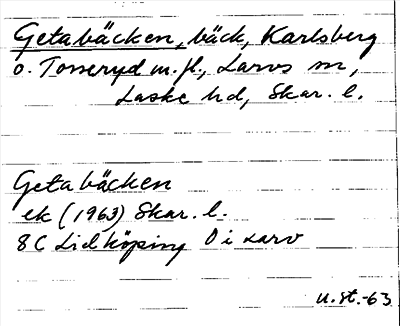 Getabäcken, bäck, Karlsberg
o. Torreryd m. fl., Larvs sn,
Laske hd, Skar. l.
Getabäcken
ek (1963) Skar. l.
8C Lidköping Ö i Larv
u.st.-63